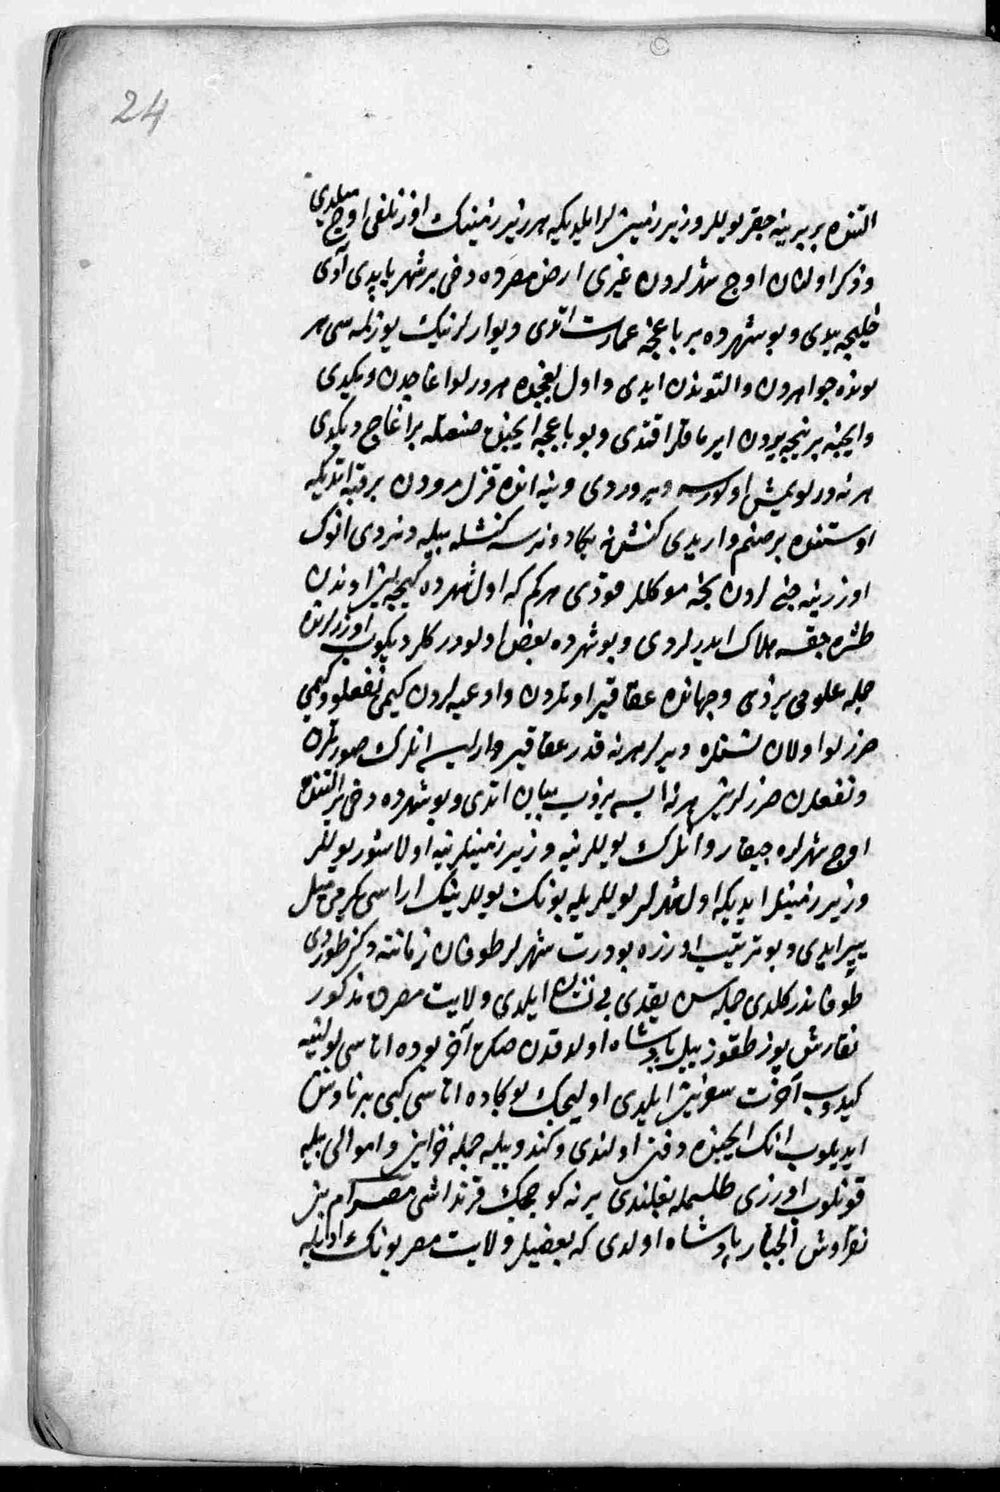 24
التنده بر برینه چقر یوللر و زیر زمینلر ایلدیکه هر زیر زمینک اوزنلغی اوچ میلدی
و ذکر اولنان اوچ شهرلردن غیری ارض مصرده دخی بر شهر یاپدی آدی
خلیجه یدی و بو شهرده بر باغچه عمارت اتدی دیوارلرنیک یوزلمه سی هر
لونده جواهردن و التوندن ایدی و اول بغچه ده هر درلو اغاجدن دیکدی
و ایچنه بر نیچه یردن ایرماقلر اقتدی و بو باغچه ایچنده صنعتله بر اغاج دیکدی
هر نه درلو یمش اولورسه ویروردی و ینه انده قزل مرمردن بر قبه اتدیکه
اوستنده بر صنم واریدی کنش نه یکا دونرسه کنشله بیله دونردی انوک
اوزرینه جنی لردن بخه موکللر قودی هر کم که اول شهرده کیجه ایله اوندن
طشره چقسه هلاک ایدرلردی و بو شهرده بعض اولو دیرکلر دیکوب اوزرلرنده
جمله علومی یزدی و جهانده عقاقیر اوتلردن و ادعیه لردن کیمی نفعلو و کیمی
ضررلو اولان نسنلره دیرلر هر نه قدر عقاقیر وار ایسه انلرک صورتلرن
و نفعلرن ضررلرین هر نه ایسه یزوب بیان اتدی و بو شهرده دخی یر التنده
اوچ شهرلره چیقار و انلرک یوللرینه و زیر زمینلرینه اولاشور یوللر
و زیر زمینلر ایدیکه اول شهرلر یوللریله بونک یوللرینک اراسی یکرمی میل
ییر ایدی و بو ترتیب اوزره بو درت شهرلر طوفان زماننه دکن طوردی
طوفاندر کلدی جمله سن یقدی بی نشان ایلدی ولایت مصرده مذکور
نقارش یوز طقوز ییل پادشاه اولدقدن صکره آخر بو ده اتاسی یولنه
کیدوب آخرت سفرین ایلدی اولیجک بو کاده اتاسی کبی بر ناوس
ایدیلوب انک ایچنده دفن اولندی و کندو بیله جمله خزاین و اموالی بیله
قونلوب اوزری طلسمله بغلندی یرنه کوچک قرنداشی مصرام بن
نقراوش الجبار پادشاه اولدی که بعضیلر ولایت مصر بونک ادایله